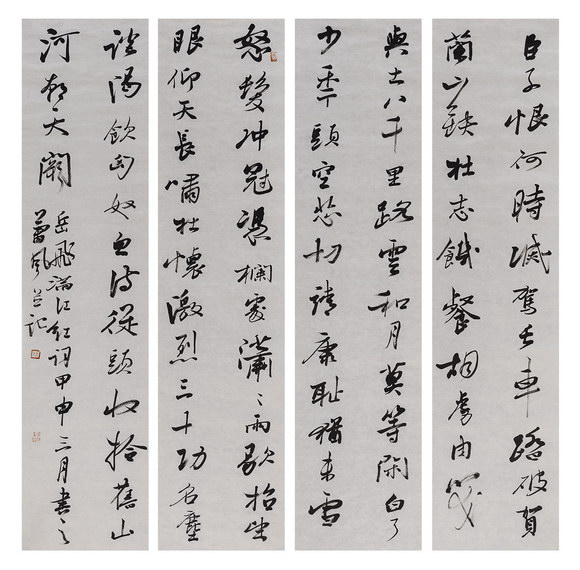 怒髮冲冠憑欄處瀟〻雨歇抬望
眼仰天長嘯壮懷激烈三十功名塵
與土八千里路雲和月莫等閑白了
少年頭空悲切靖康耻猶未雪
臣子恨何時滅駕長車踏破賀
蘭山缺壮志饑餐胡虜肉笑
談渴飲匈奴血待從頭收拾舊山
河朝天闕
岳飛滿江红詞甲申三月書之
風並記